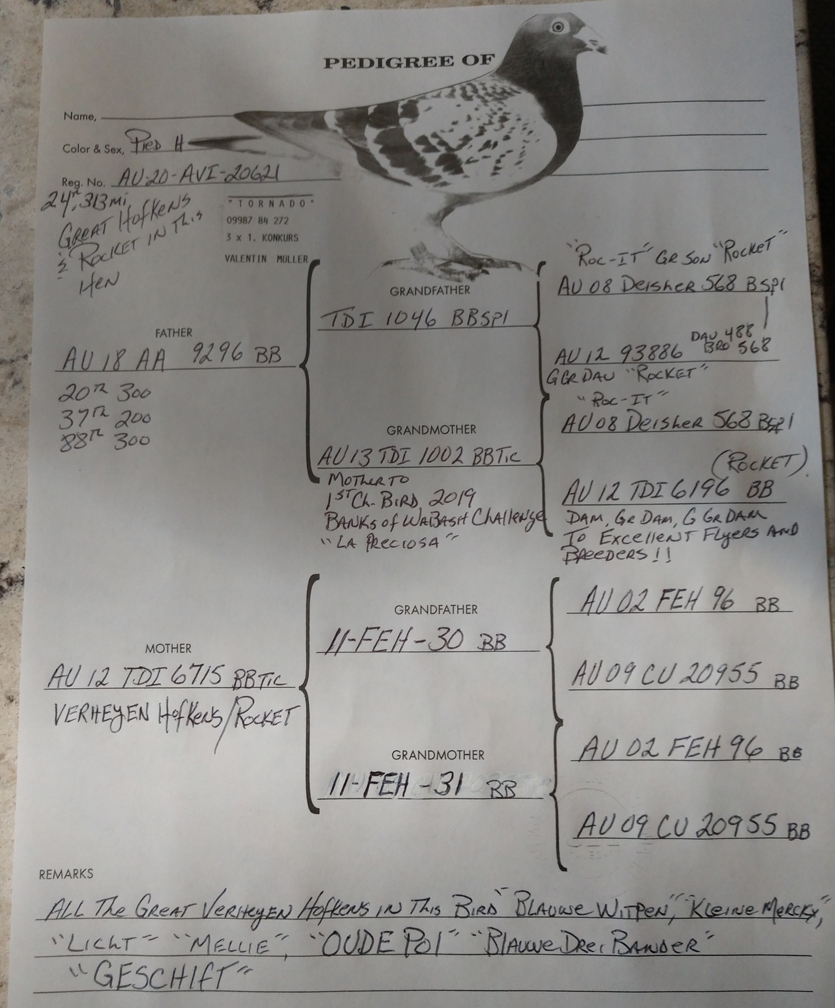 PEDIGREE OF
Name,
Color & Sex, PIED H
Reg. No. AU-20-AVI-20621
24TH, 313 mi,
GREAT HofKENS
½ ROCKET IN THIS
HEN
"TORNADO"
09987 84 272
3 x 1. KONKURS
VALENTIN MÜLLER
FATHER
AU 18 AA 9296 BB
20TH 300
37TH 200
88TH 300
GRANDFATHER
TDI 1046 BBSPI
GRANDMOTHER
AU 13 TDI 1002 BBTic
MOTHER TO
1ST Ch. BIRD 2019
BANKS of WABASH ChallENGE
"LA PRECIOSA"
"ROC-IT" GR SON "ROCKET"
AU 08 Deisher 568 BSPI
AU 12 93886 DAU 488
BRO 568
GGR DAU "ROCKET"
"ROC-IT"
AU 08 Deisher 568 BSPI
(ROCKET)
AU 12 TDI 6196 BB
DAM, GR DAM, G GR DAM
To EXCELLENT FlyERS AND
BREEDERS!!
MOTHER
AU 12 TDI 6715 BBTic
VERHEYEN HofKENS/ROCKET
GRANDFATHER
11-FEH-30 BB
GRANDMOTHER
11-FEH-31 BB
AU 02 FEH 96 BB
AU 09 CU 20955 BB
AU 02 FEH 96 BB
AU 09 CU 20955 BB
REMARKS
ALL The GREAT VERHEYEN HofKENS IN THIS BIRD "BLAUWE WITPEN", "KLEINE MERCKX",
"LICHT" "MELLIE", "OUDE POI" "BLAUWE DREI BANDER"
"GESCHIFT"